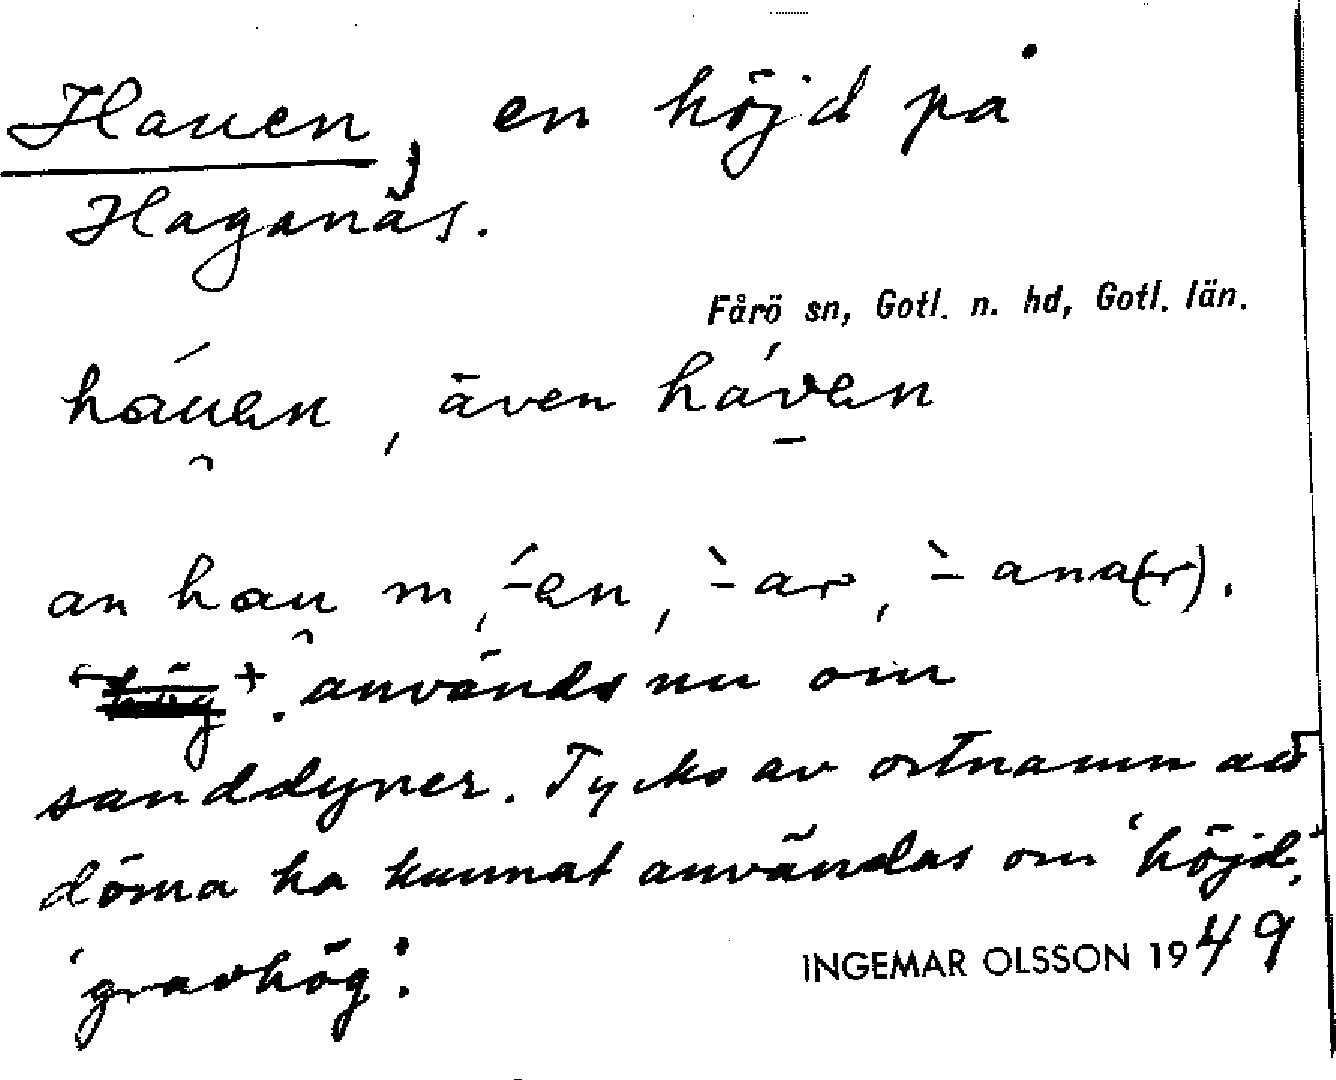 Hauen, en höjd på
Haganäs.
Fårö sn, Gotl. n. hd, Gotl. län.
háu̯ən, även háv̱ən
an hau̯ m, ́-ən, ̀-ar, ̀-ana(r).
'hög'. används nu om
sanddyner. Tycks av ortnamn att
döma ha kunnat användas om 'höjd',
'gravhög'.
INGEMAR OLSSON 1949